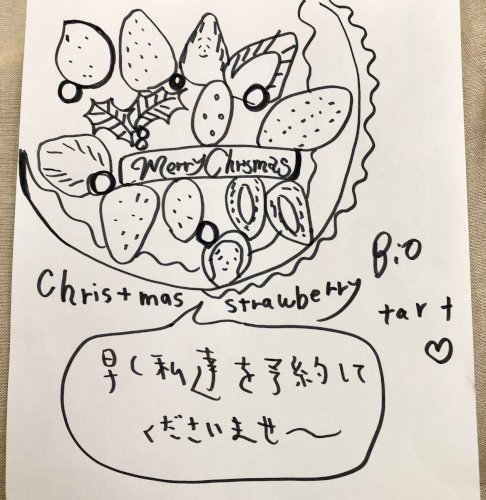 Merry Chrismas
Christmas strawberry
Bio
tart
早く私達を予約して
くださいませ〜